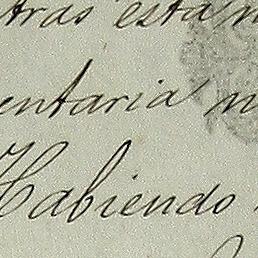 tras esta
entaria
Habiendo